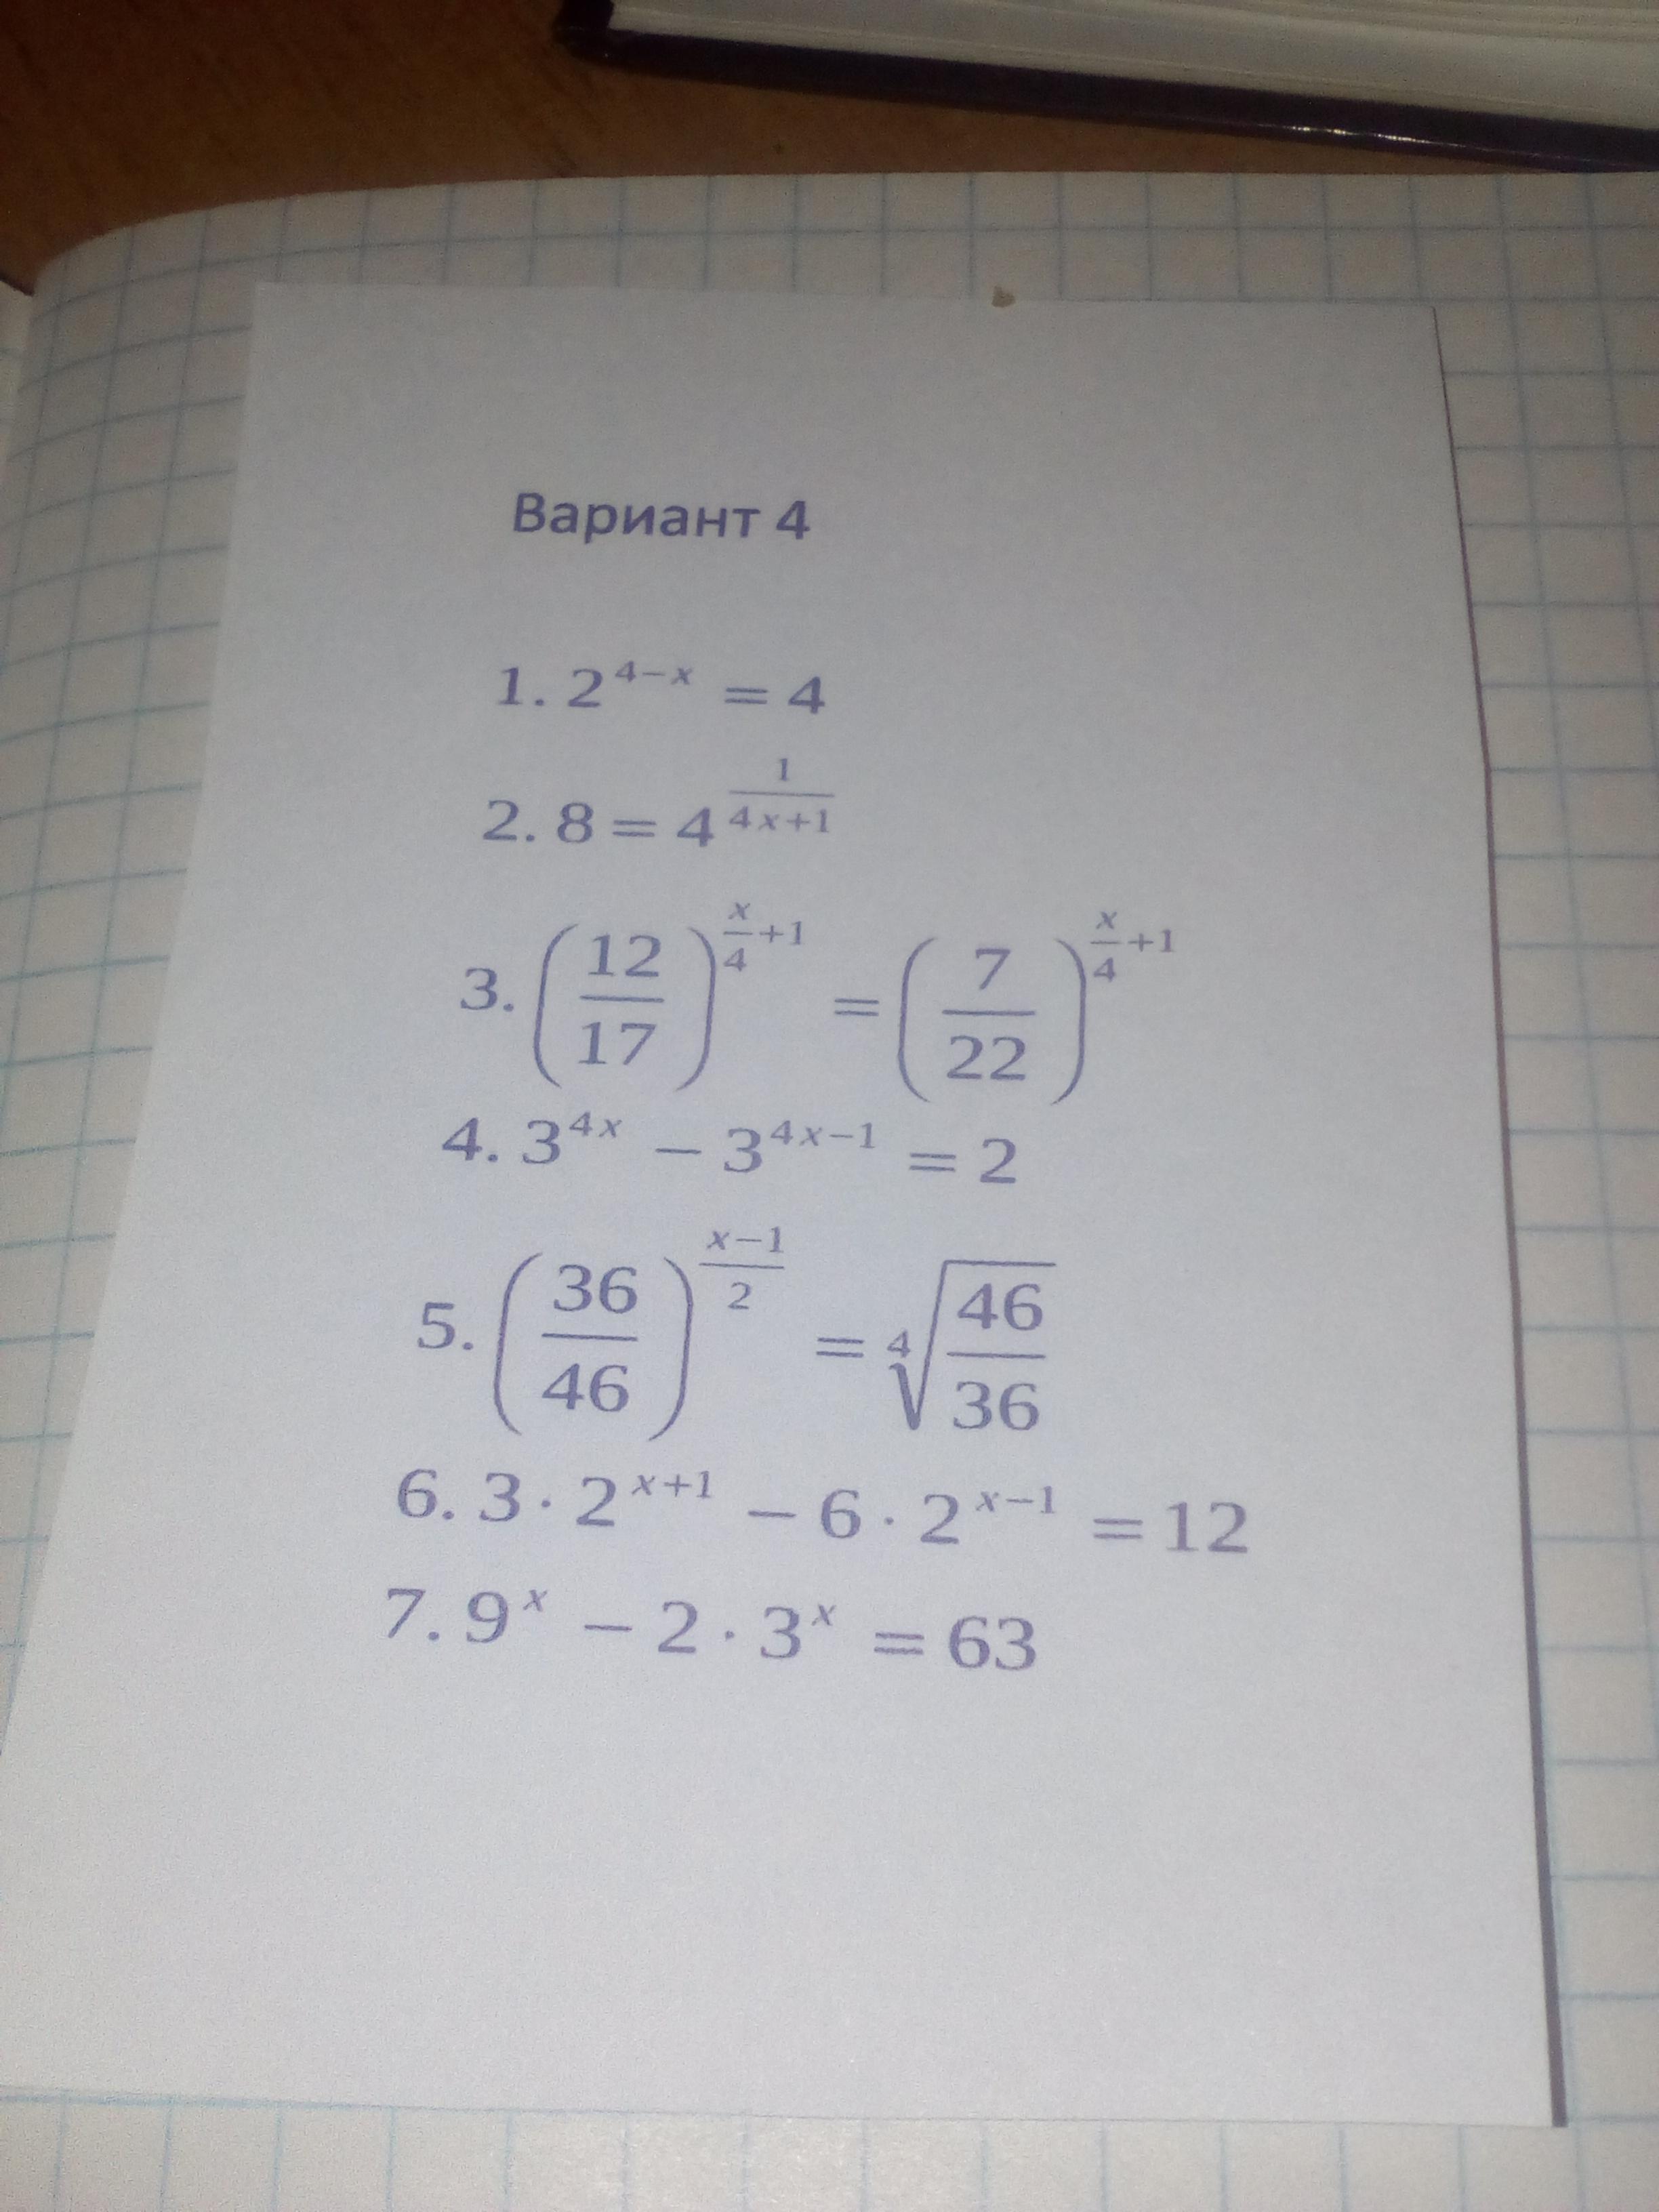 Вариант 4
1. 2^{4−x} = 4
2. 8 = 4^{\frac{1}{4x+1}}
3. \left(\frac{12}{17}\right)^{\frac{x}{4}+1} = \left(\frac{7}{22}\right)^{\frac{x}{4}+1}
4. 3^{4x} − 3^{4x−1} = 2
5. \left(\frac{36}{46}\right)^{\frac{x−1}{2}} = \sqrt[4]{\frac{46}{36}}
6. 3 · 2^{x+1} − 6 · 2^{x−1} = 12
7. 9^{x} − 2 · 3^{x} = 63